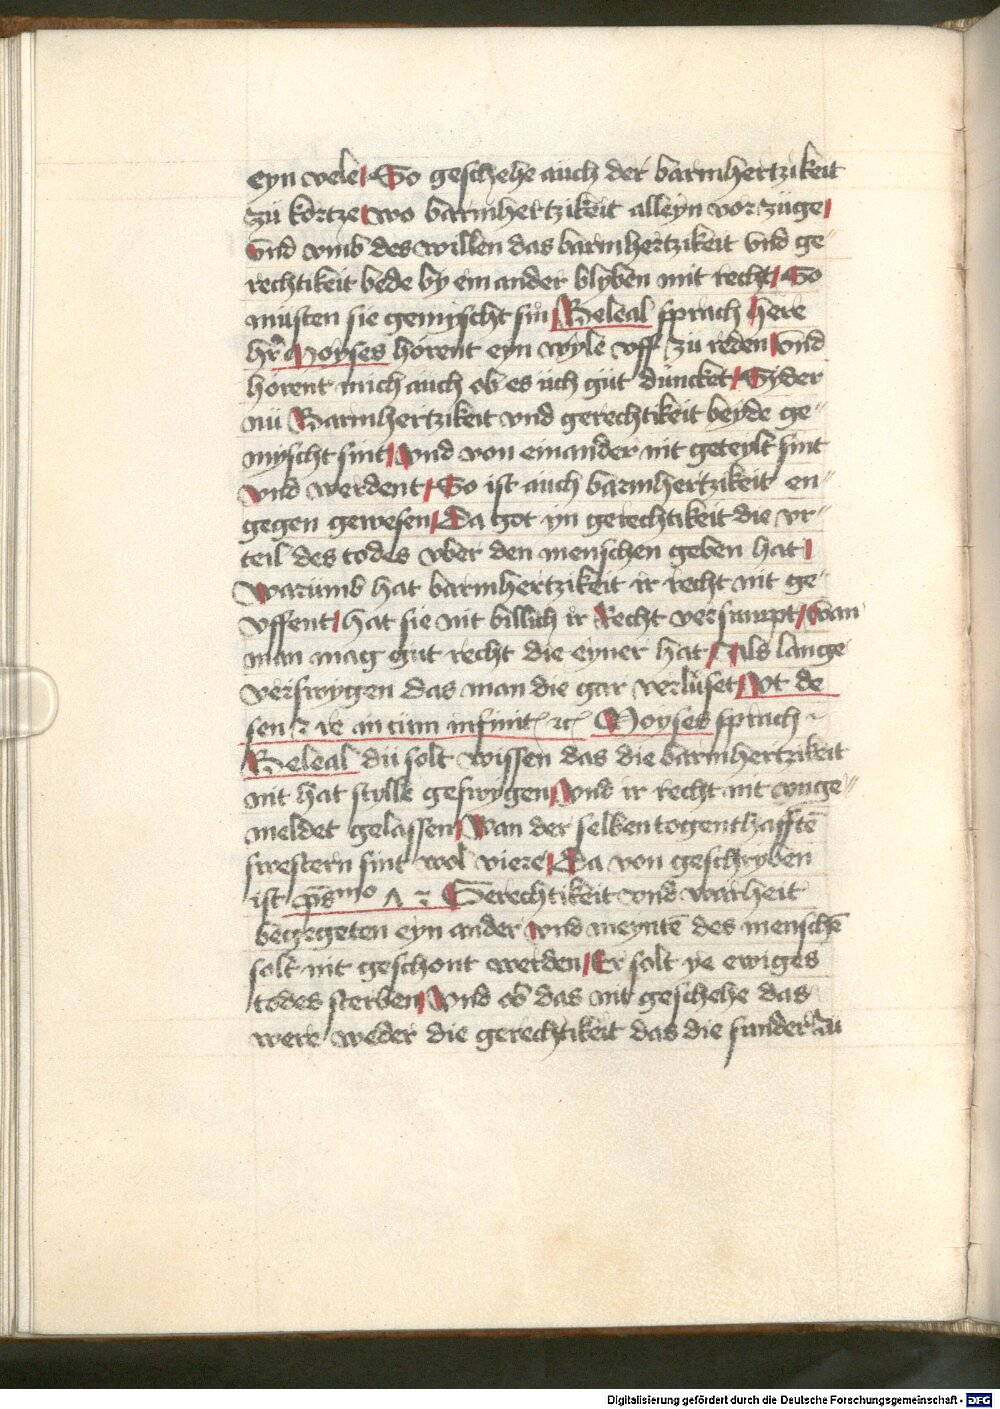 eyn wele / So geschehe auch der barmhertzikeit
zü kortze / wo barmhertzikeit alleyn vor züge /
vnd vmb des willen das barmhertzikeit vnd ge-
rechtikeit bede by ein ander blyben mit recht / So
müsten sie gemyscht sin / Beleal sprach here
hr̄ Moyses horent eyn wyle vff zü reden vnd
horent mich auch ob es üch güt düncket / Syder
nü Barmhertzikeit vnd gerechtikeit beyde ge-
myscht sint / vnd von einander nit geteylt sint
vnd werdent / So ist auch barmhertzikeit en-
gegen gewesen / Da got yn gerechtikeit die vr-
teil des todes vber den menschen geben hat /
warümb hat barmhertzikeit ir recht nit ge-
vffent / hat sie nit billich ir Recht versumpt / wan
man mag güt recht die eyner hat / Als lange
verswygen das man die gar verlüset / vt de
sen ⁊ re Moyses sprach
Beleal dü solt wissen das die barmhertzikeit
nit hat stylle geswygen / vnd ir recht nit vnge-
meldet gelassen / Wan der selben togenthafftē
swestern sint wol viere / Da von geschryben
ist Gerechtikeit vnd warheit
begegeten eyn ander vnd meyntē des menschē
solt nit geschont werden / Er solt ye ewiges
todes sterben / vnd ob das nit geschehe das
were weder die gerechtikeit das die sunder zu
Digitalisierung gefördert durch die Deutsche Forschungsgemeinschaft - DFG